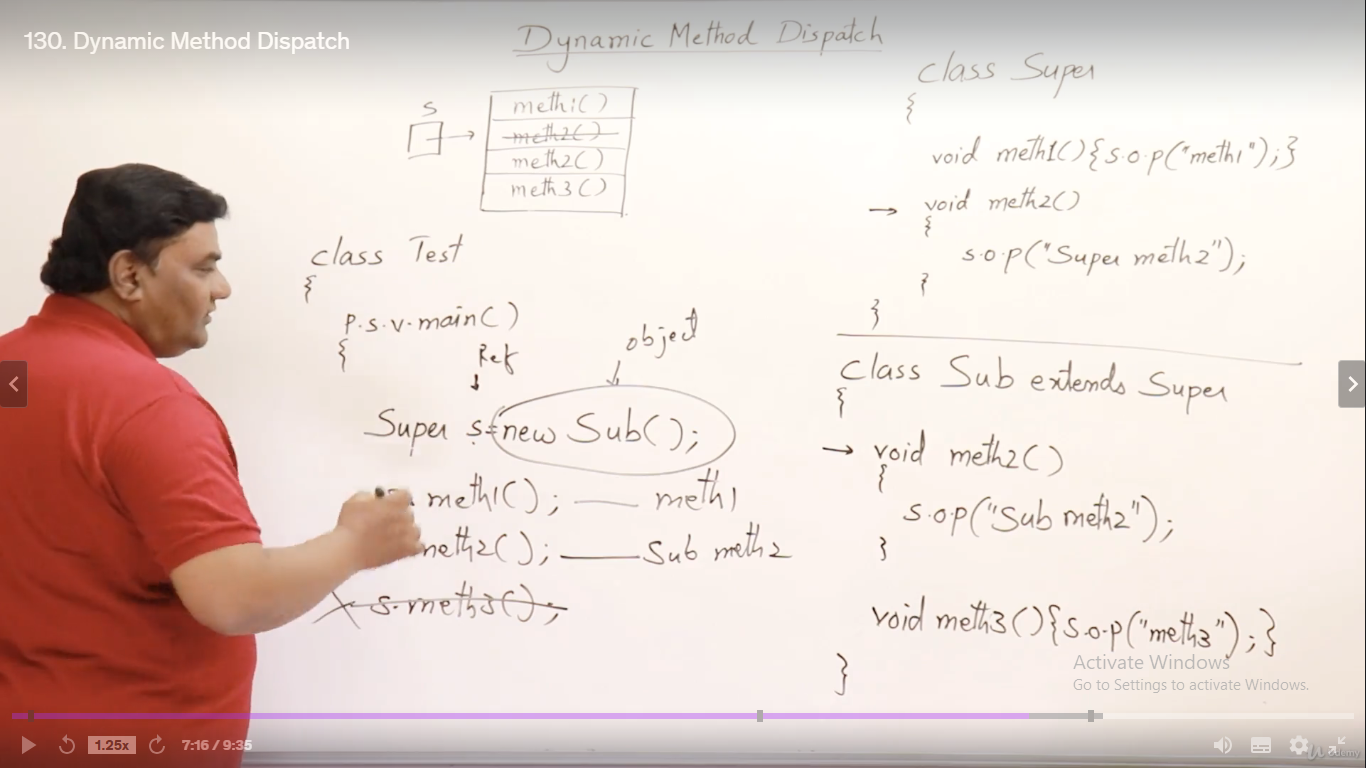 130. Dynamic Method Dispatch
Dynamic Method Dispatch
s
meth1()
meth2()
meth2()
meth3()
class Test
{
p.s.v.main()
{
Ref
object
Super s=new Sub();
meth1(); meth1
meth2(); Sub meth2
s.meth3();
class Super
{
void meth1(){s.o.p("meth1");}
→ void meth2()
{
s.o.p("Super meth2");
}
}
class Sub extends Super
{
→ void meth2()
{
s.o.p("Sub meth2");
}
void meth3(){s.o.p("meth3");}
}
Activate Windows
Go to Settings to activate Windows.
1.25x
7:16 / 9:35
Udemy